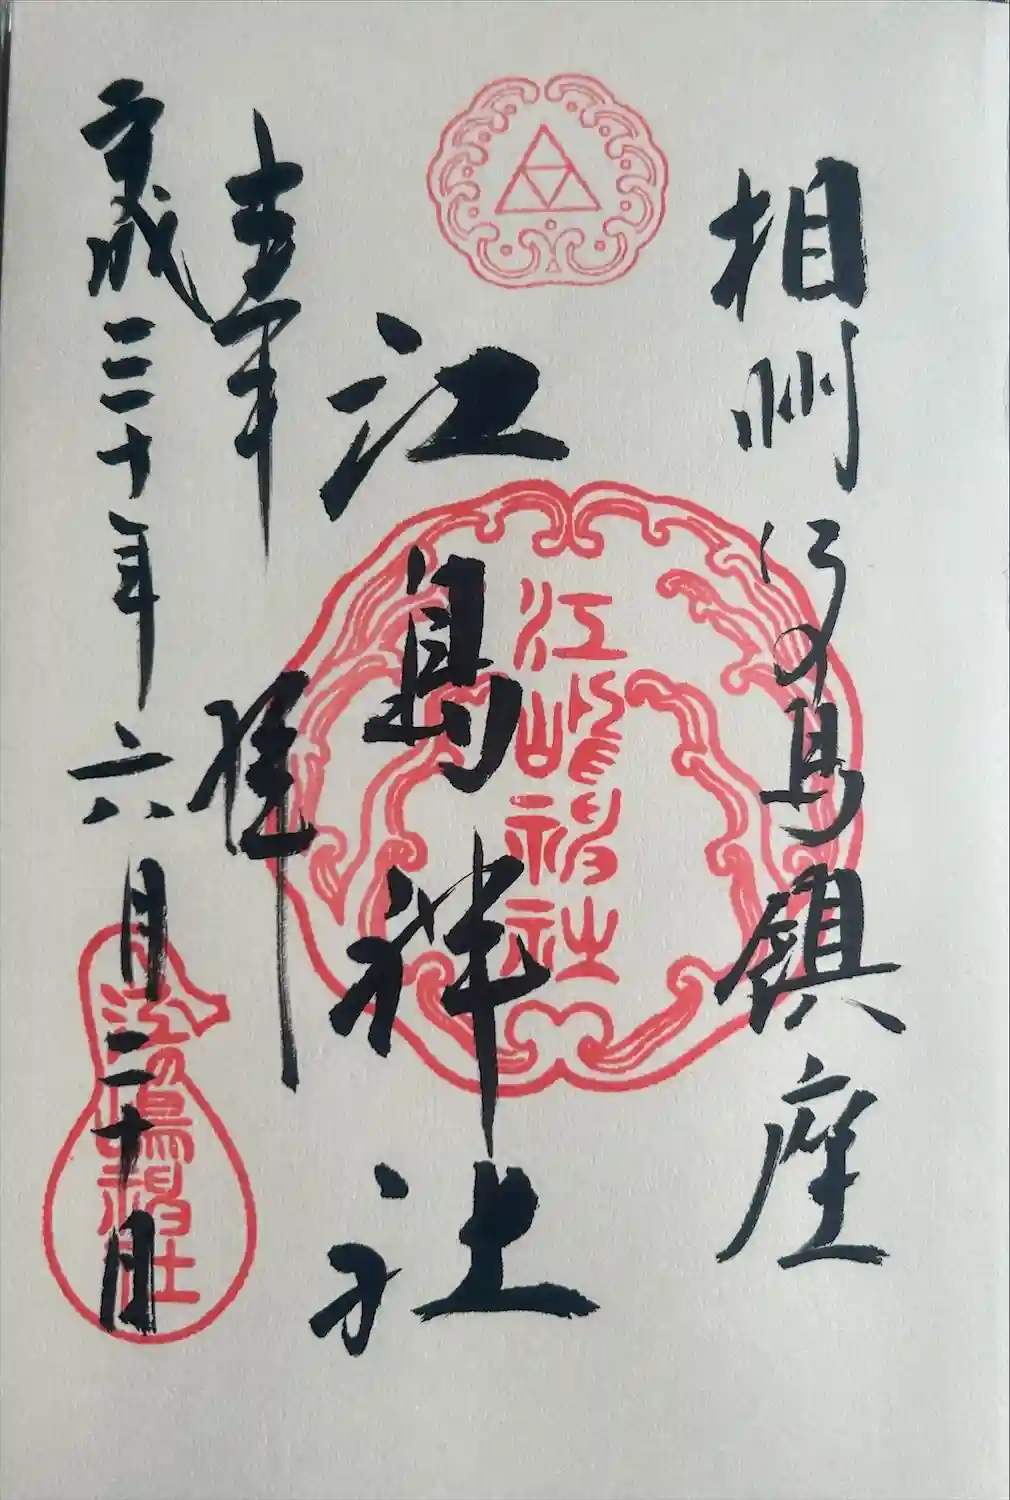 相州江の島鎮座
江島神社
江嶋神社
奉拝
平成三十年六月二十日
江の嶋神社